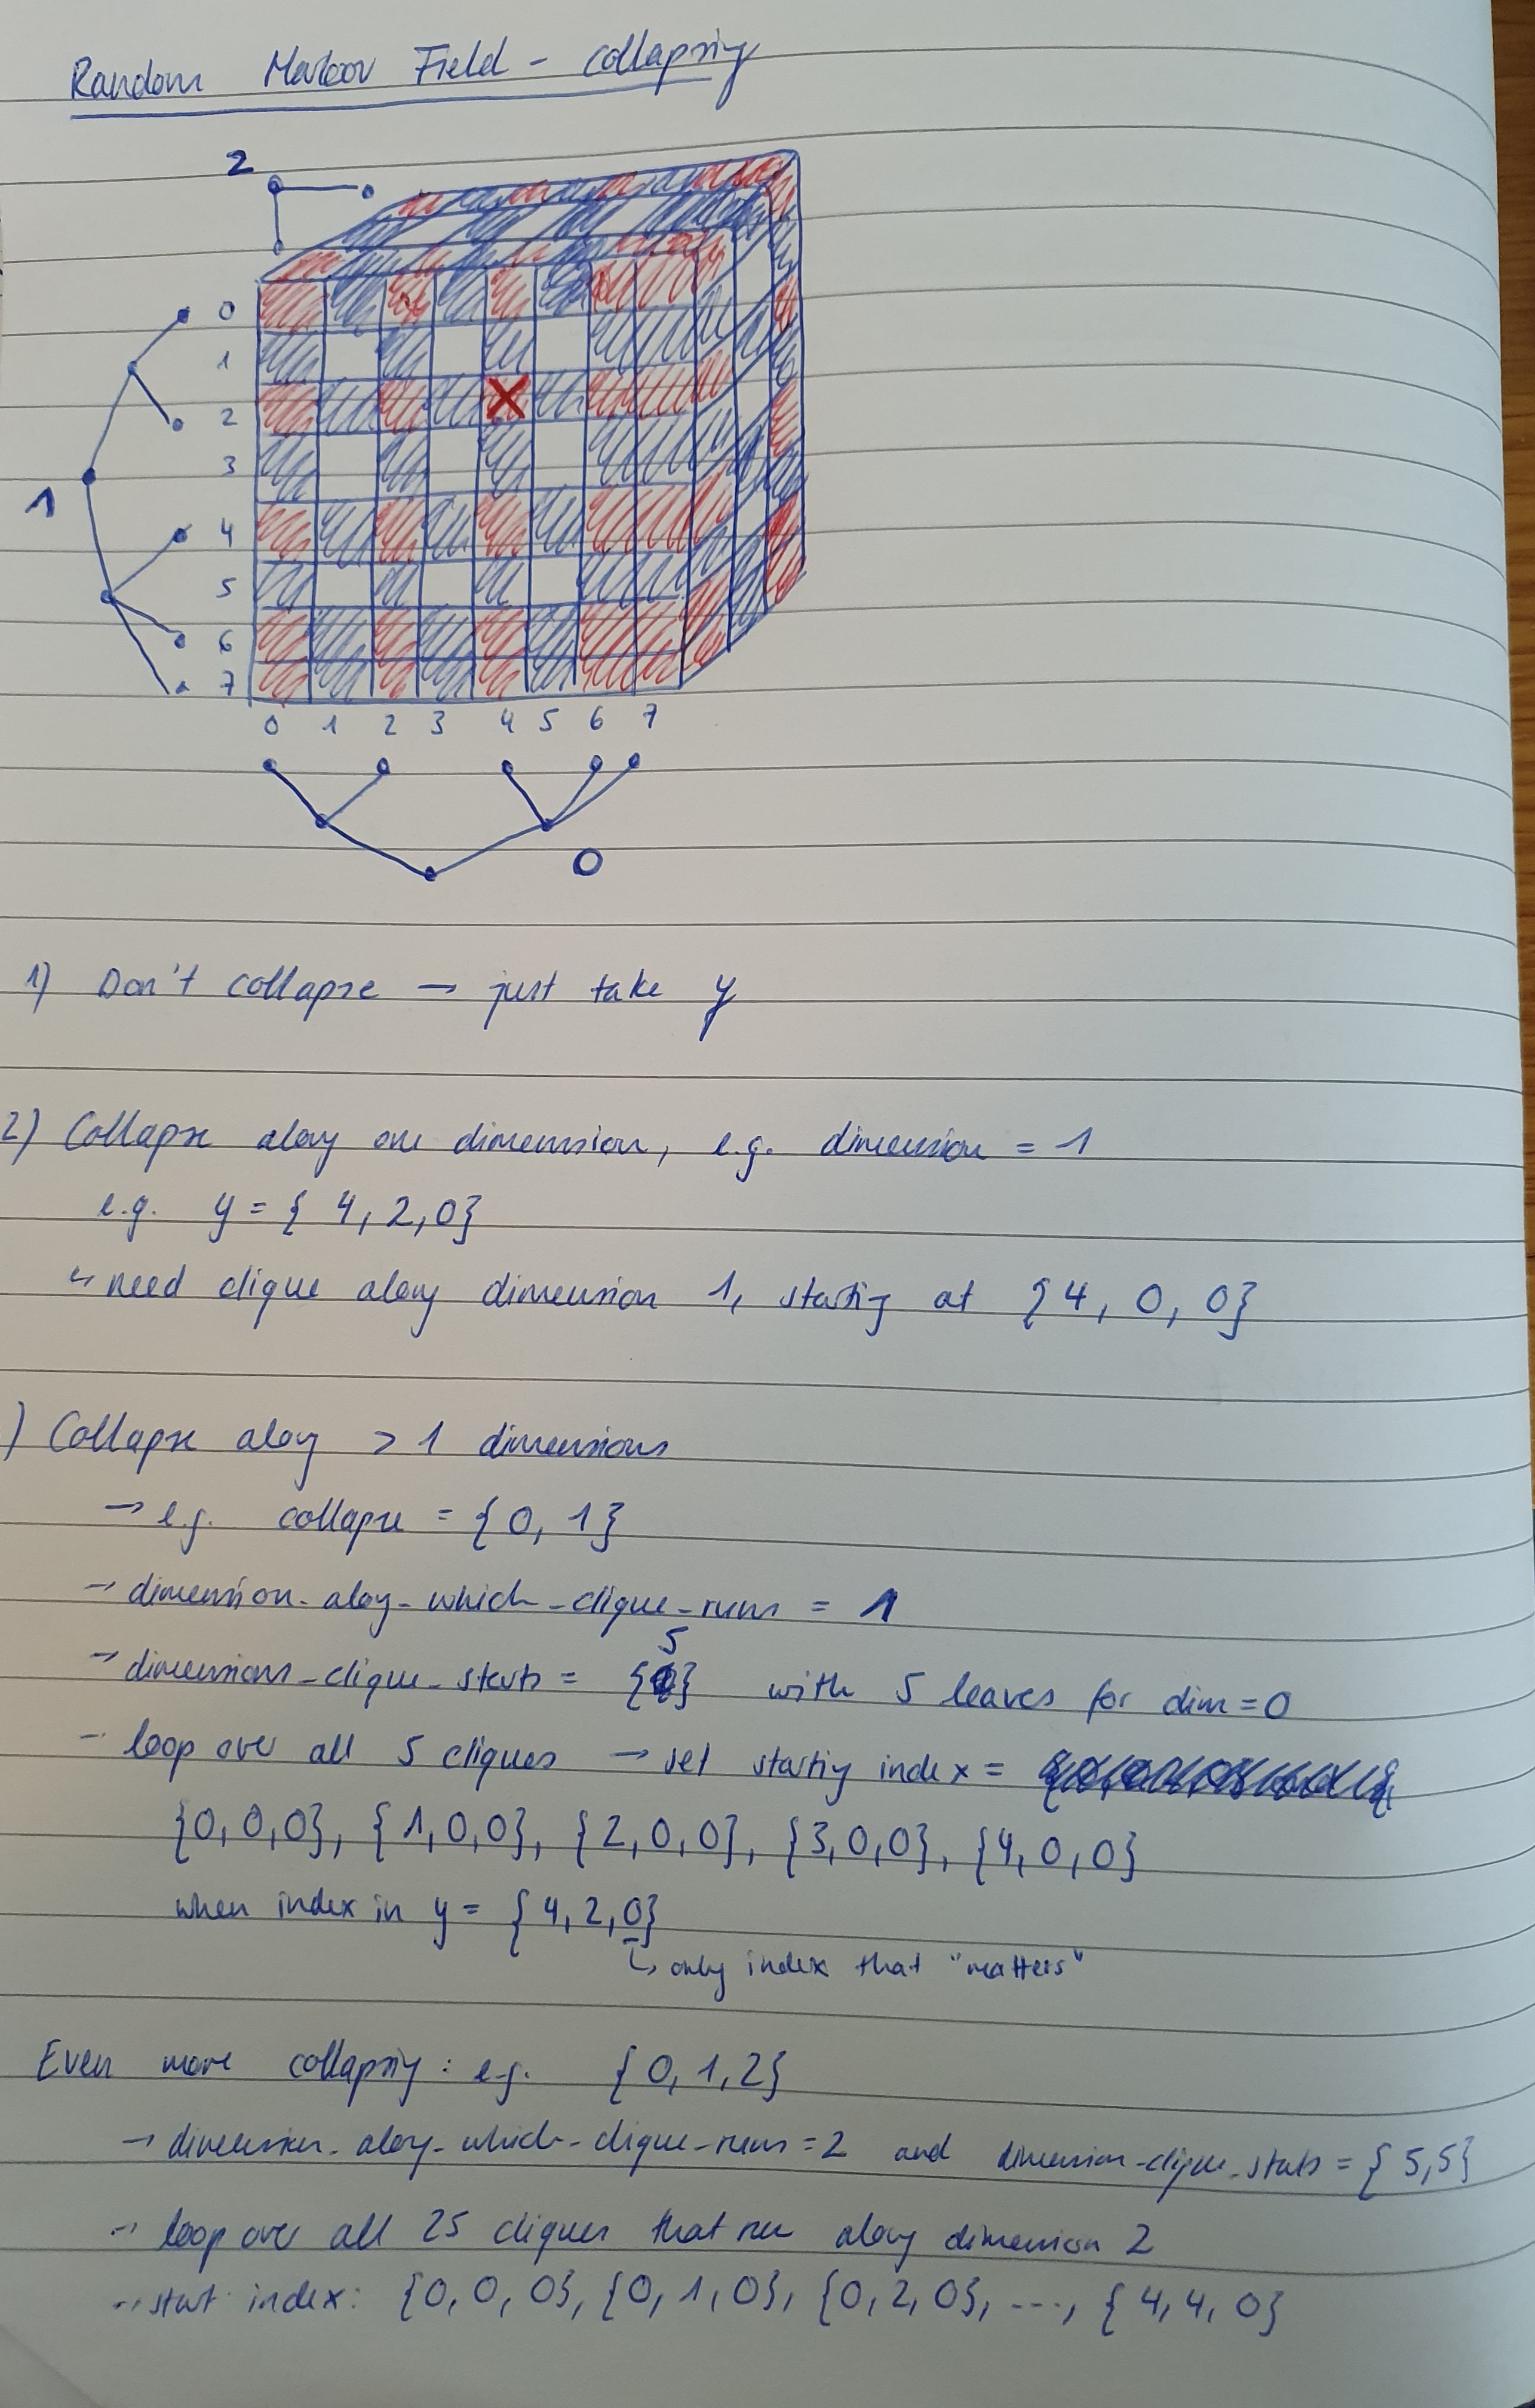 Random Markov Field - Collapsing
2
0
1
2
3
1
4
5
6
7
0 1 2 3 4 5 6 7
0
1) Don't collapse → just take y
2) Collapse along one dimension, e.g. dimension = 1
e.g. y = { 4, 2, 0}
↳ need clique along dimension 1, starting at { 4, 0, 0}
) Collapse along > 1 dimensions
→ e.g. collapse = { 0, 1 }
→ dimension_along_which_clique_runs = 1
→ dimensions_clique_starts = {5} with 5 leaves for dim = 0
- loop over all 5 cliques → set starting index =
{0, 0, 0}, { 1, 0, 0}, { 2, 0, 0}, { 3, 0, 0}, { 4, 0, 0}
when index in y = { 4, 2, 0}
↳ only index that "matters"
Even more collapsing: e.g. { 0, 1, 2}
→ dimension_along_which_clique_runs = 2 and dimension_clique_starts = { 5, 5}
→ loop over all 25 cliques that run along dimension 2
→ start index: {0, 0, 0}, {0, 1, 0}, {0, 2, 0}, ..., { 4, 4, 0}